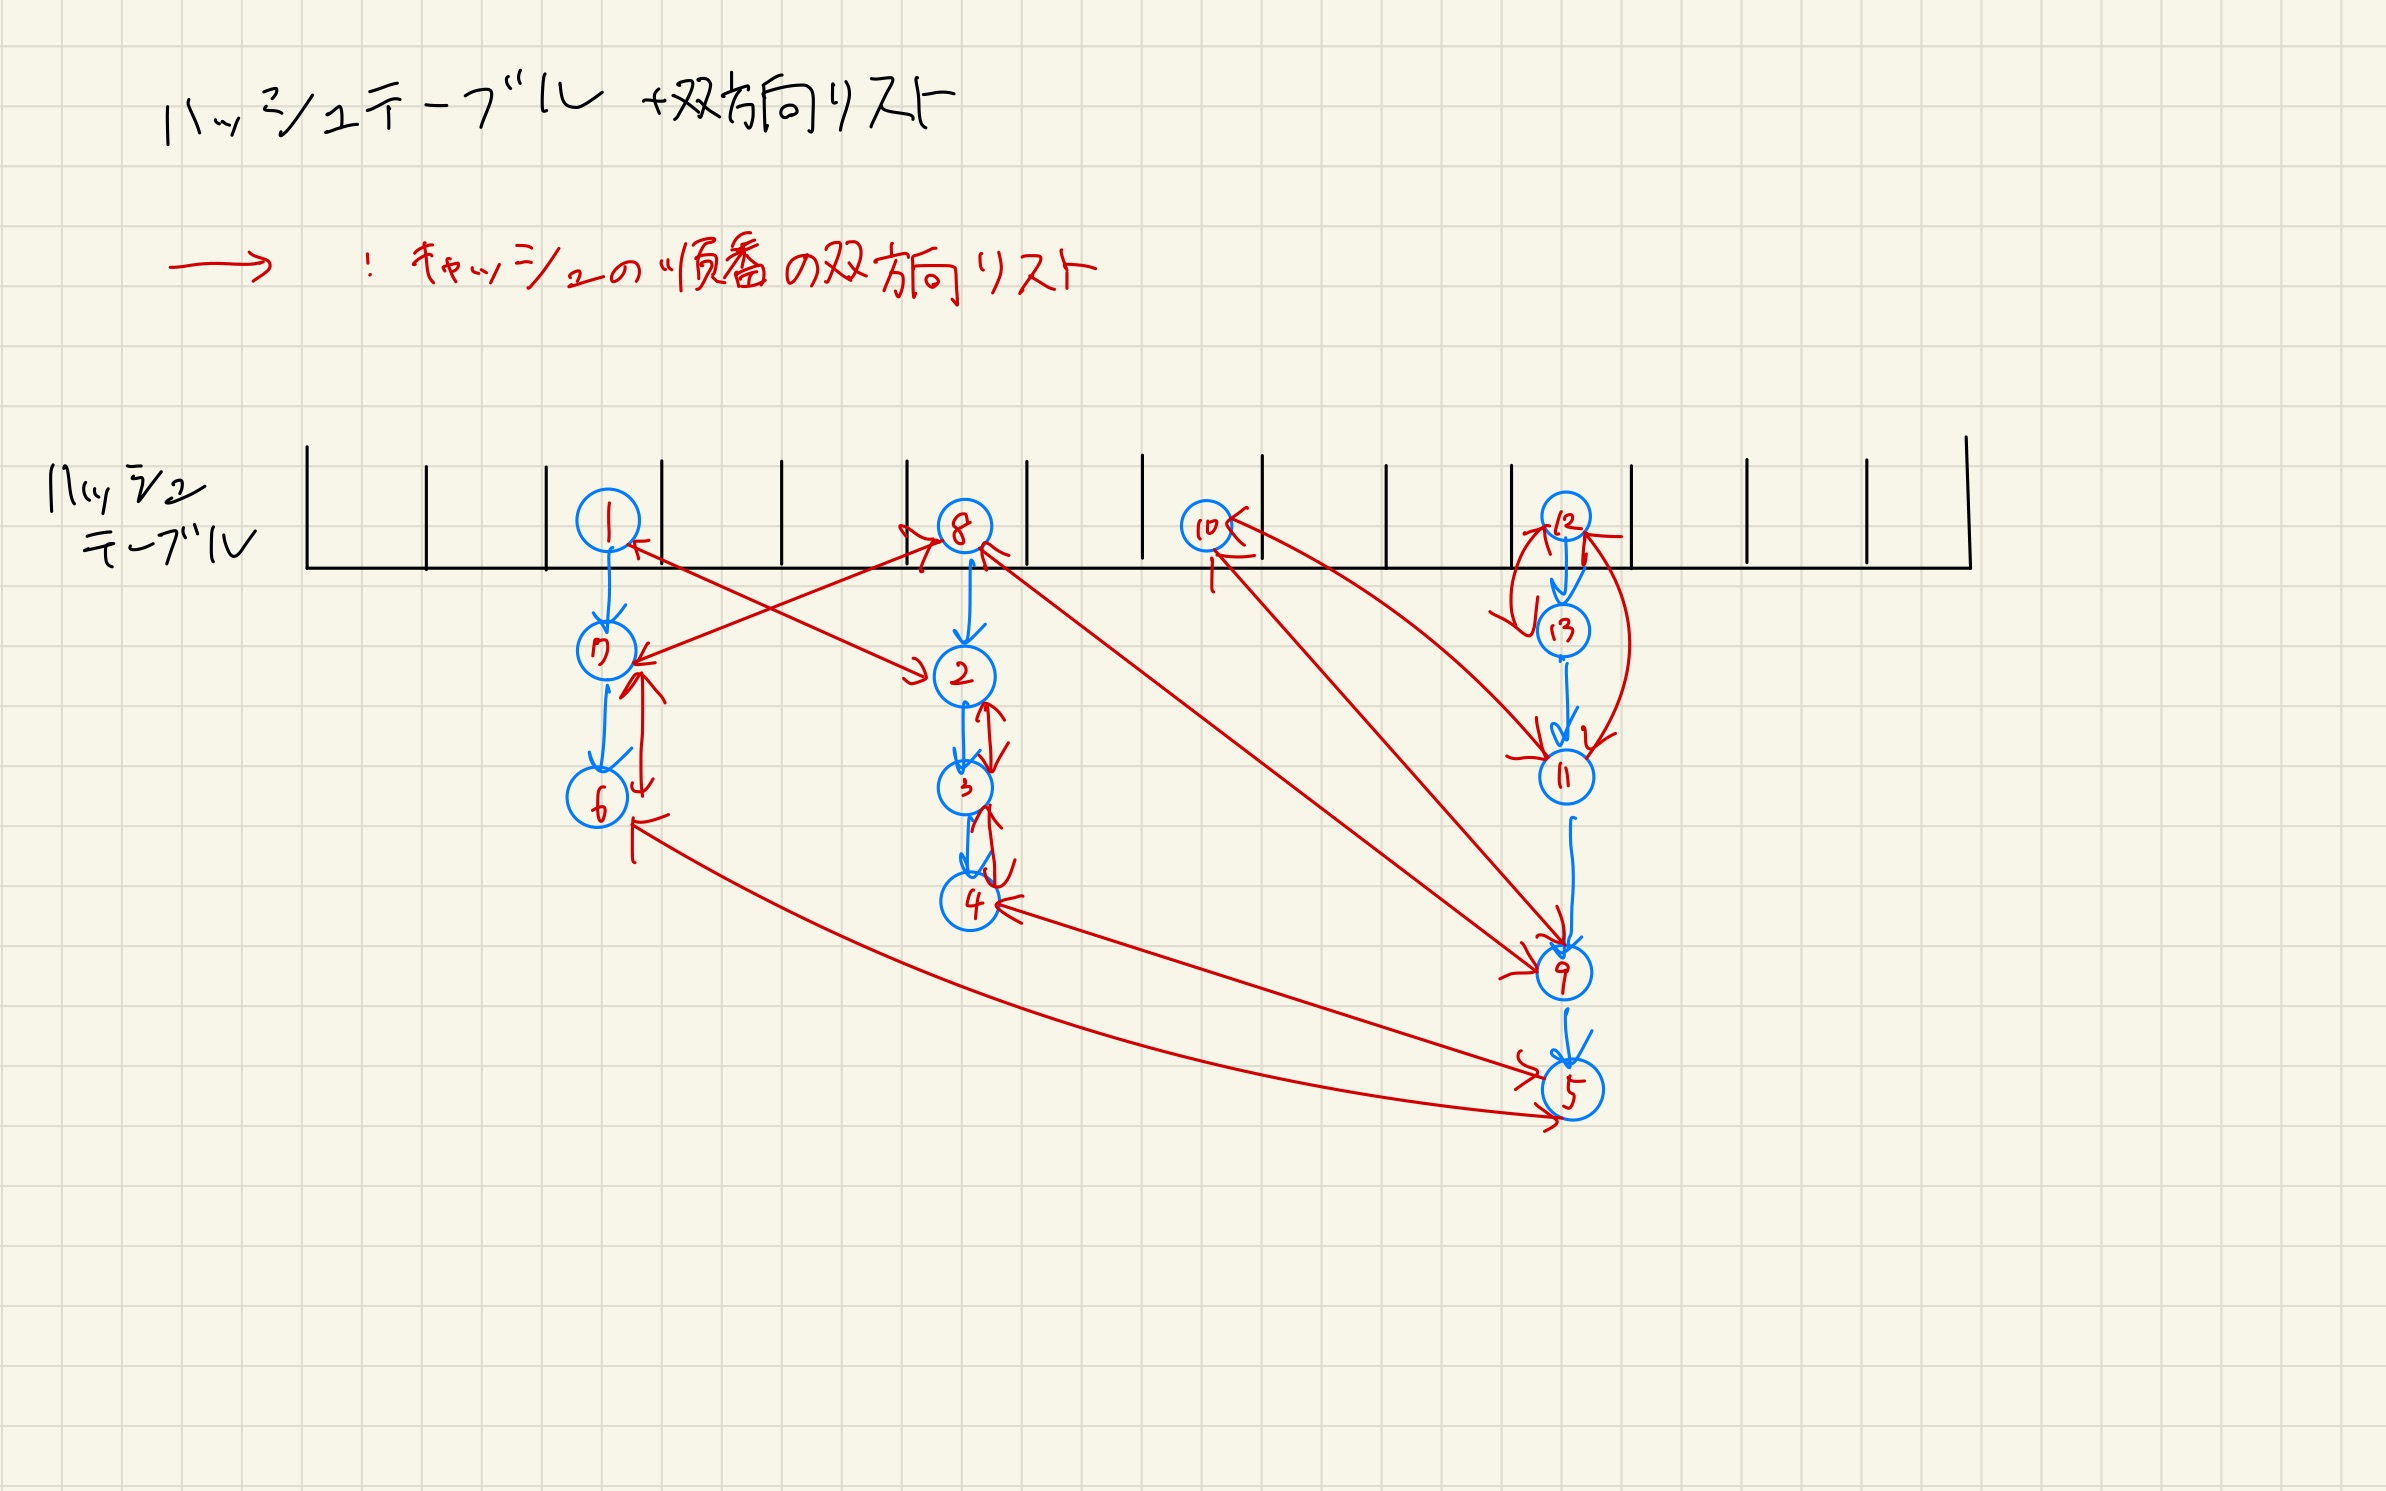 ハッシュテーブル + 双方向リスト
→ : キャッシュの順番の双方向リスト
ハッシュ
テーブル
1 8 10 12
7 2 13
6 3 11
4 9
5